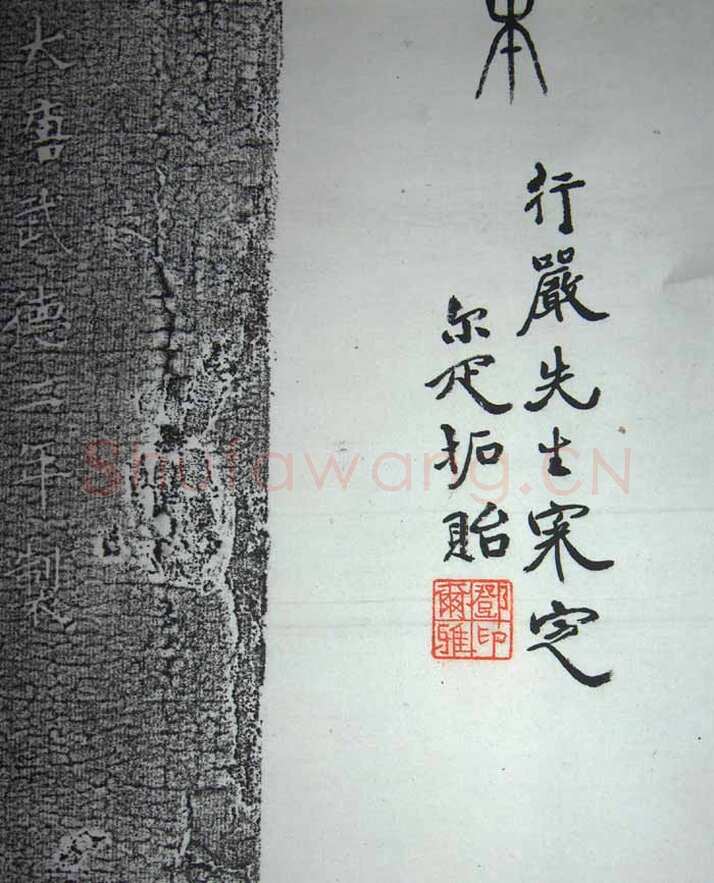 本
行嚴先生宷定
尔疋拓貽
鄧印爾雅
大唐武德二年製
Shufawang.CN